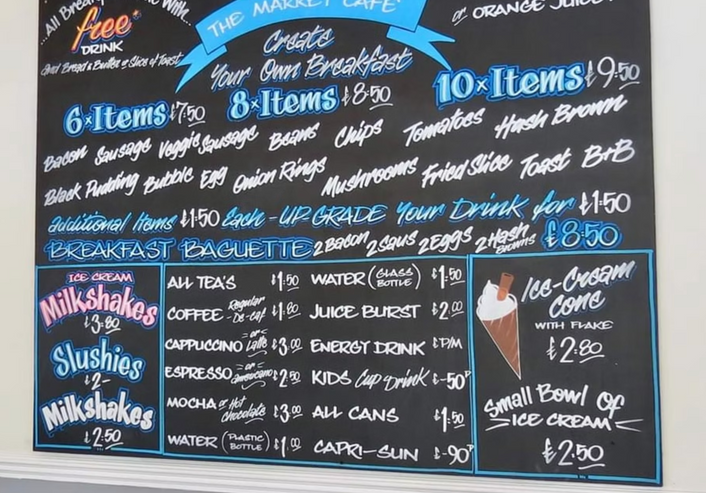 ...All Breakfasts Come With...
free
DRINK
And Bread & Butter or Slice of Toast
THE MARKET CAFE'
or ORANGE JUICE
Create
Your Own Breakfast
6xItems £7.50
8xItems £8.50
10xItems £9.50
Bacon Sausage Veggie Sausage Beans Chips Tomatoes Hash Brown
Black Pudding Bubble Egg Onion Rings Mushrooms Fried Slice Toast B+B
additional Items £1.50 Each - UP-GRADE Your Drink for £1.50
BREAKFAST BAGUETTE 2 Bacon 2 Saus 2 Eggs 2 Hash Browns £8.50
ICE CREAM
Milkshakes
£3.80
Slushies
£2-
Milkshakes
£2.50
ALL TEA'S £1.50
COFFEE - Regular De-caf £1.80
CAPPUCCINO or Latte £3.00
ESPRESSO or americano £2.50
MOCHA or Hot Chocolate £3.00
WATER (PLASTIC BOTTLE) £1.00
WATER (GLASS BOTTLE) £1.50
JUICE BURST £2.00
ENERGY DRINK £P/M
KIDS Cup Drink £-50P
ALL CANS £1.50
CAPRI-SUN £-90P
Ice-Cream
Cone
WITH FLAKE
£2.80
Small Bowl Of
ICE CREAM
£2.50